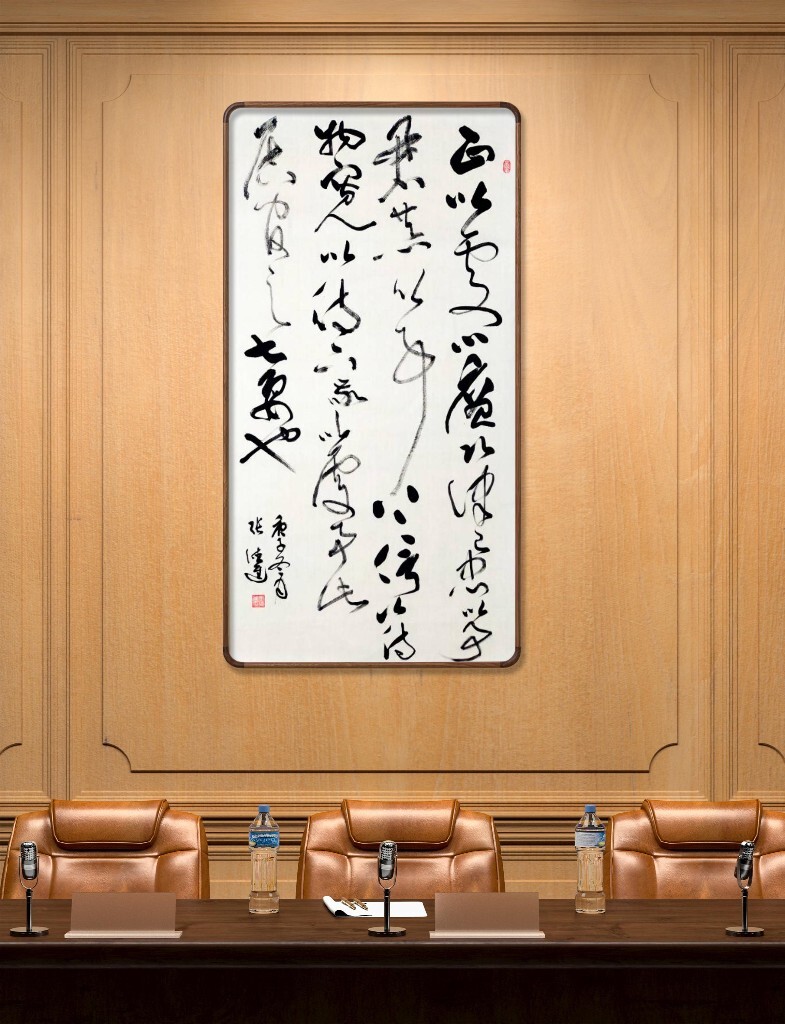 正以處心廉以律己忠以事
君恭以事長信以接
物寬以待下敬以處事此
居官之七要也
庚子冬月
張